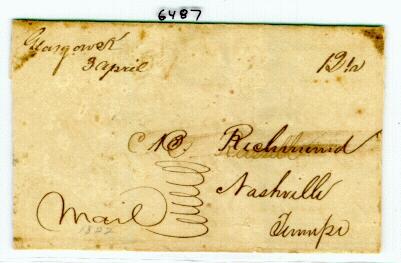 6487
Glasgow K
3 April
12½
Richmond
Nashville
Mail
1822